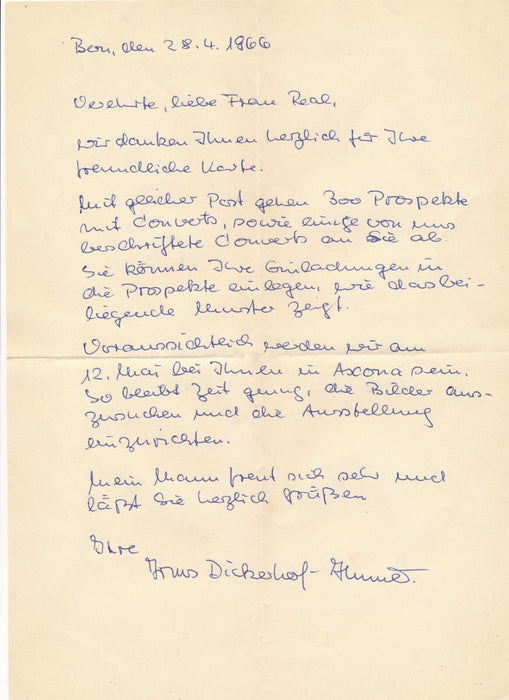 Bern, den 28.4.1966
Verehrte, liebe Frau Real,
wir danken Ihnen herzlich für Ihre
freundliche Karte.
Mit gleicher Post gehen 300 Prospekte
mit Couverts, sowie einige von uns
beschriftete Couverts an Sie ab.
Sie können Ihre Einladungen in
die Prospekte einlegen, wie das bei-
liegende Muster zeigt.
Voraussichtlich werden wir am
12. Mai bei Ihnen in Axona sein.
So bleibt Zeit genug, die Bilder aus-
zusuchen und die Ausstellung
einzurichten.
Mein Mann freut sich sehr und
läßt Sie herzlich grüßen
Ihre
Dickerhof-